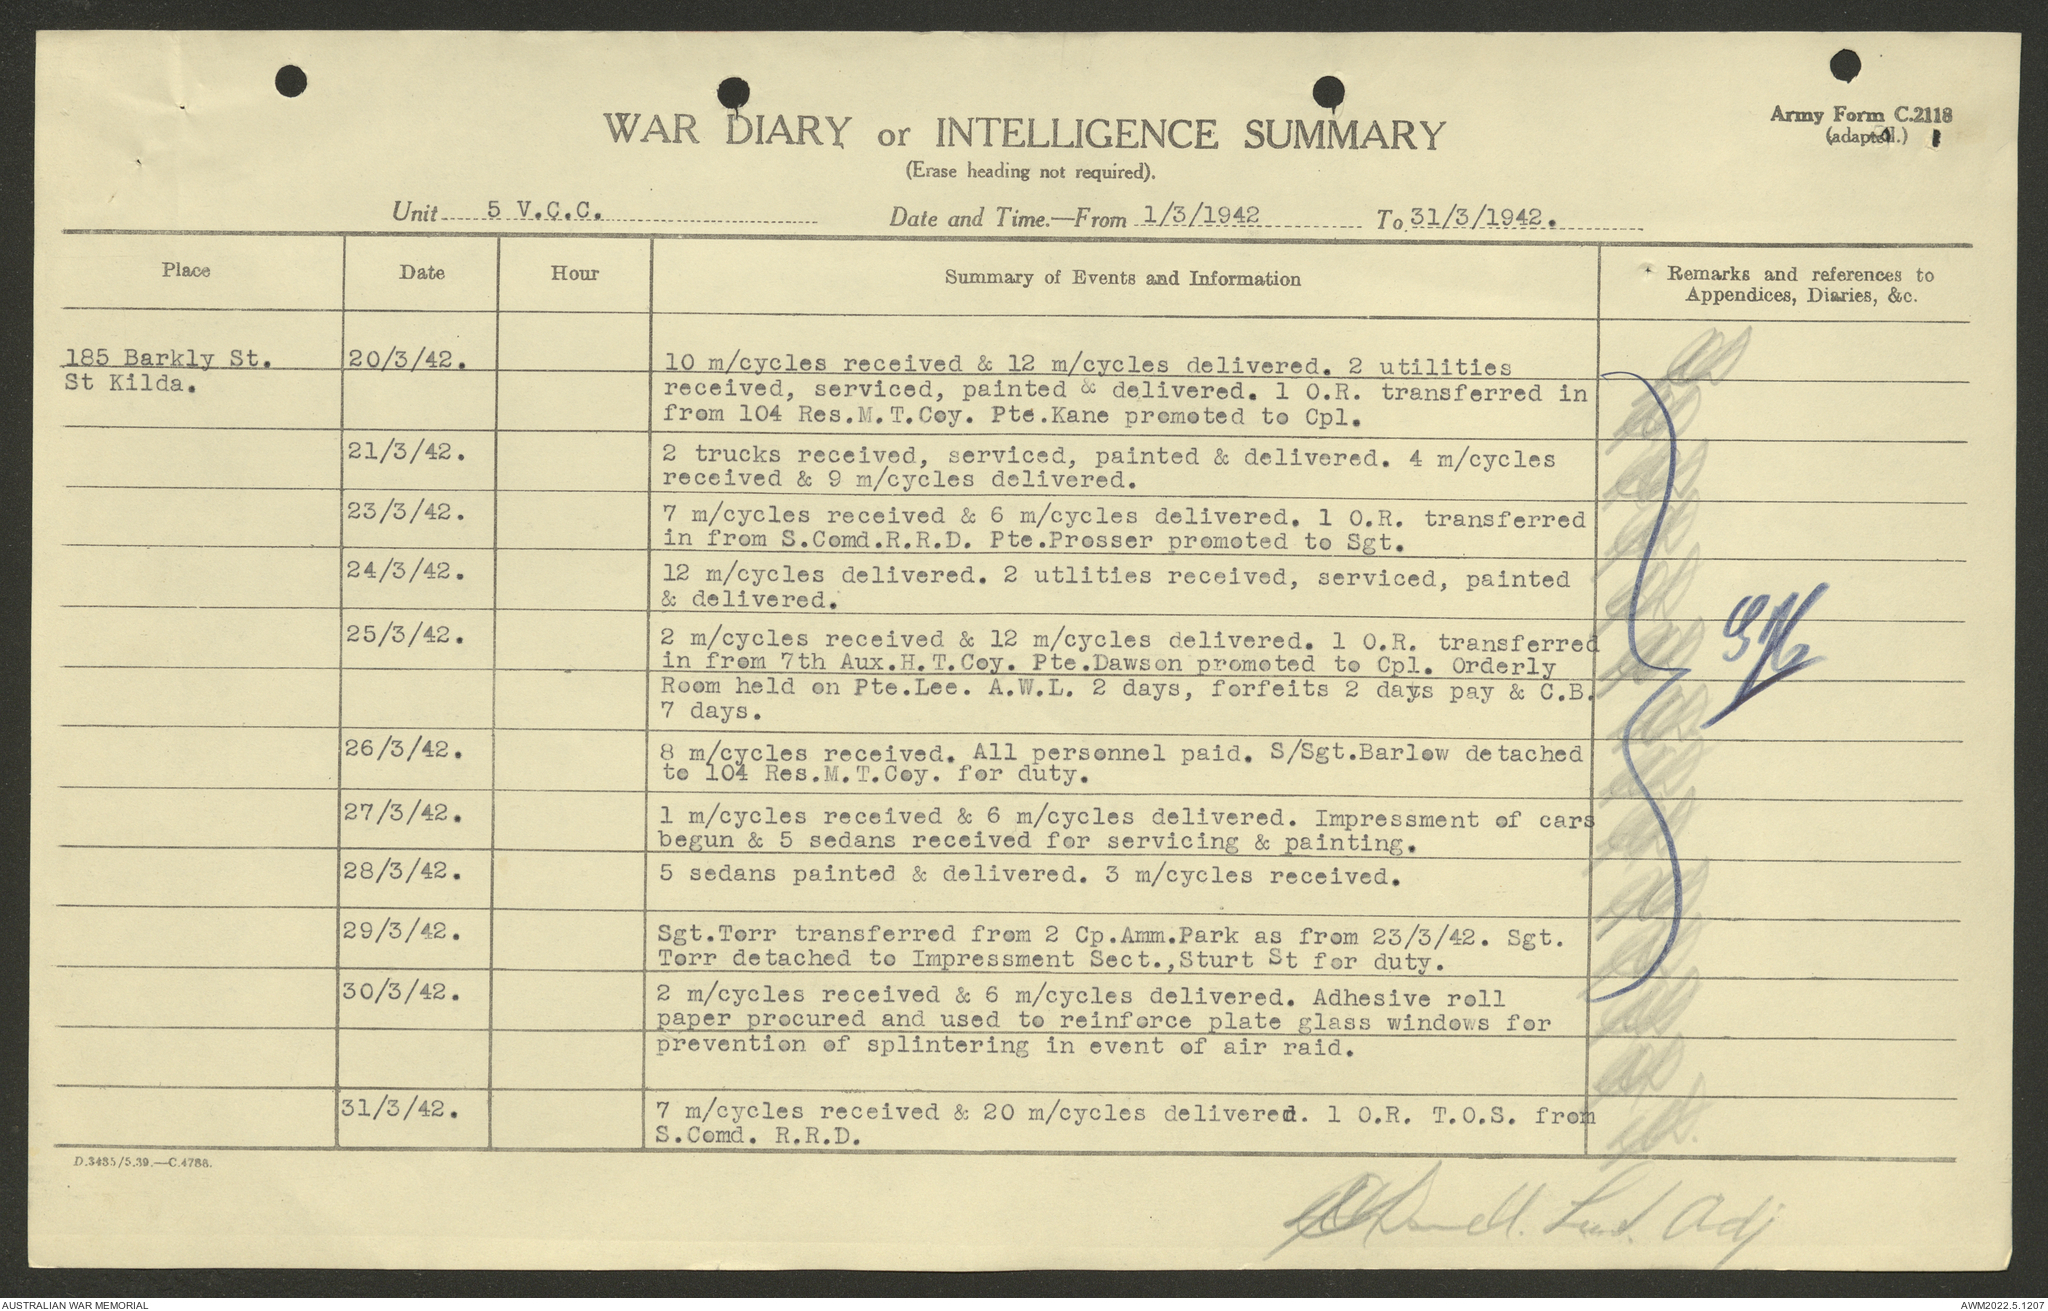 WAR DIARY or INTELLIGENCE SUMMARY
(Erase heading not required).
Army Form C.2118
(adapted.)
Unit 5 V.C.C. Date and Time.—From 1/3/1942 To 31/3/1942.
Place Date Hour Summary of Events and Information Remarks and references to
Appendices, Diaries, &c.
185 Barkly St. 20/3/42. 10 m/cycles received & 12 m/cycles delivered. 2 utilities
St Kilda. received, serviced, painted & delivered. 1 O.R. transferred in
from 104 Res.M.T.Coy. Pte.Kane promoted to Cpl.
21/3/42. 2 trucks received, serviced, painted & delivered. 4 m/cycles
received & 9 m/cycles delivered.
23/3/42. 7 m/cycles received & 6 m/cycles delivered. 1 O.R. transferred
in from S.Comd.R.R.D. Pte.Prosser promoted to Sgt.
24/3/42. 12 m/cycles delivered. 2 utlities received, serviced, painted
& delivered.
25/3/42. 2 m/cycles received & 12 m/cycles delivered. 1 O.R. transferred
in from 7th Aux.H.T.Coy. Pte.Dawson promoted to Cpl. Orderly
Room held on Pte.Lee. A.W.L. 2 days, forfeits 2 days pay & C.B.
7 days.
26/3/42. 8 m/cycles received. All personnel paid. S/Sgt.Barlow detached
to 104 Res.M.T.Coy. for duty.
27/3/42. 1 m/cycles received & 6 m/cycles delivered. Impressment of cars
begun & 5 sedans received for servicing & painting.
28/3/42. 5 sedans painted & delivered. 3 m/cycles received.
29/3/42. Sgt.Torr transferred from 2 Cp.Amm.Park as from 23/3/42. Sgt.
Torr detached to Impressment Sect.,Sturt St for duty.
30/3/42. 2 m/cycles received & 6 m/cycles delivered. Adhesive roll
paper procured and used to reinforce plate glass windows for
prevention of splintering in event of air raid.
31/3/42. 7 m/cycles received & 20 m/cycles delivered. 1 O.R. T.O.S. from
S.Comd. R.R.D.
D.3435/5.39.—C.4788.
Lieut. Adj
AUSTRALIAN WAR MEMORIAL AWM2022.5.1207